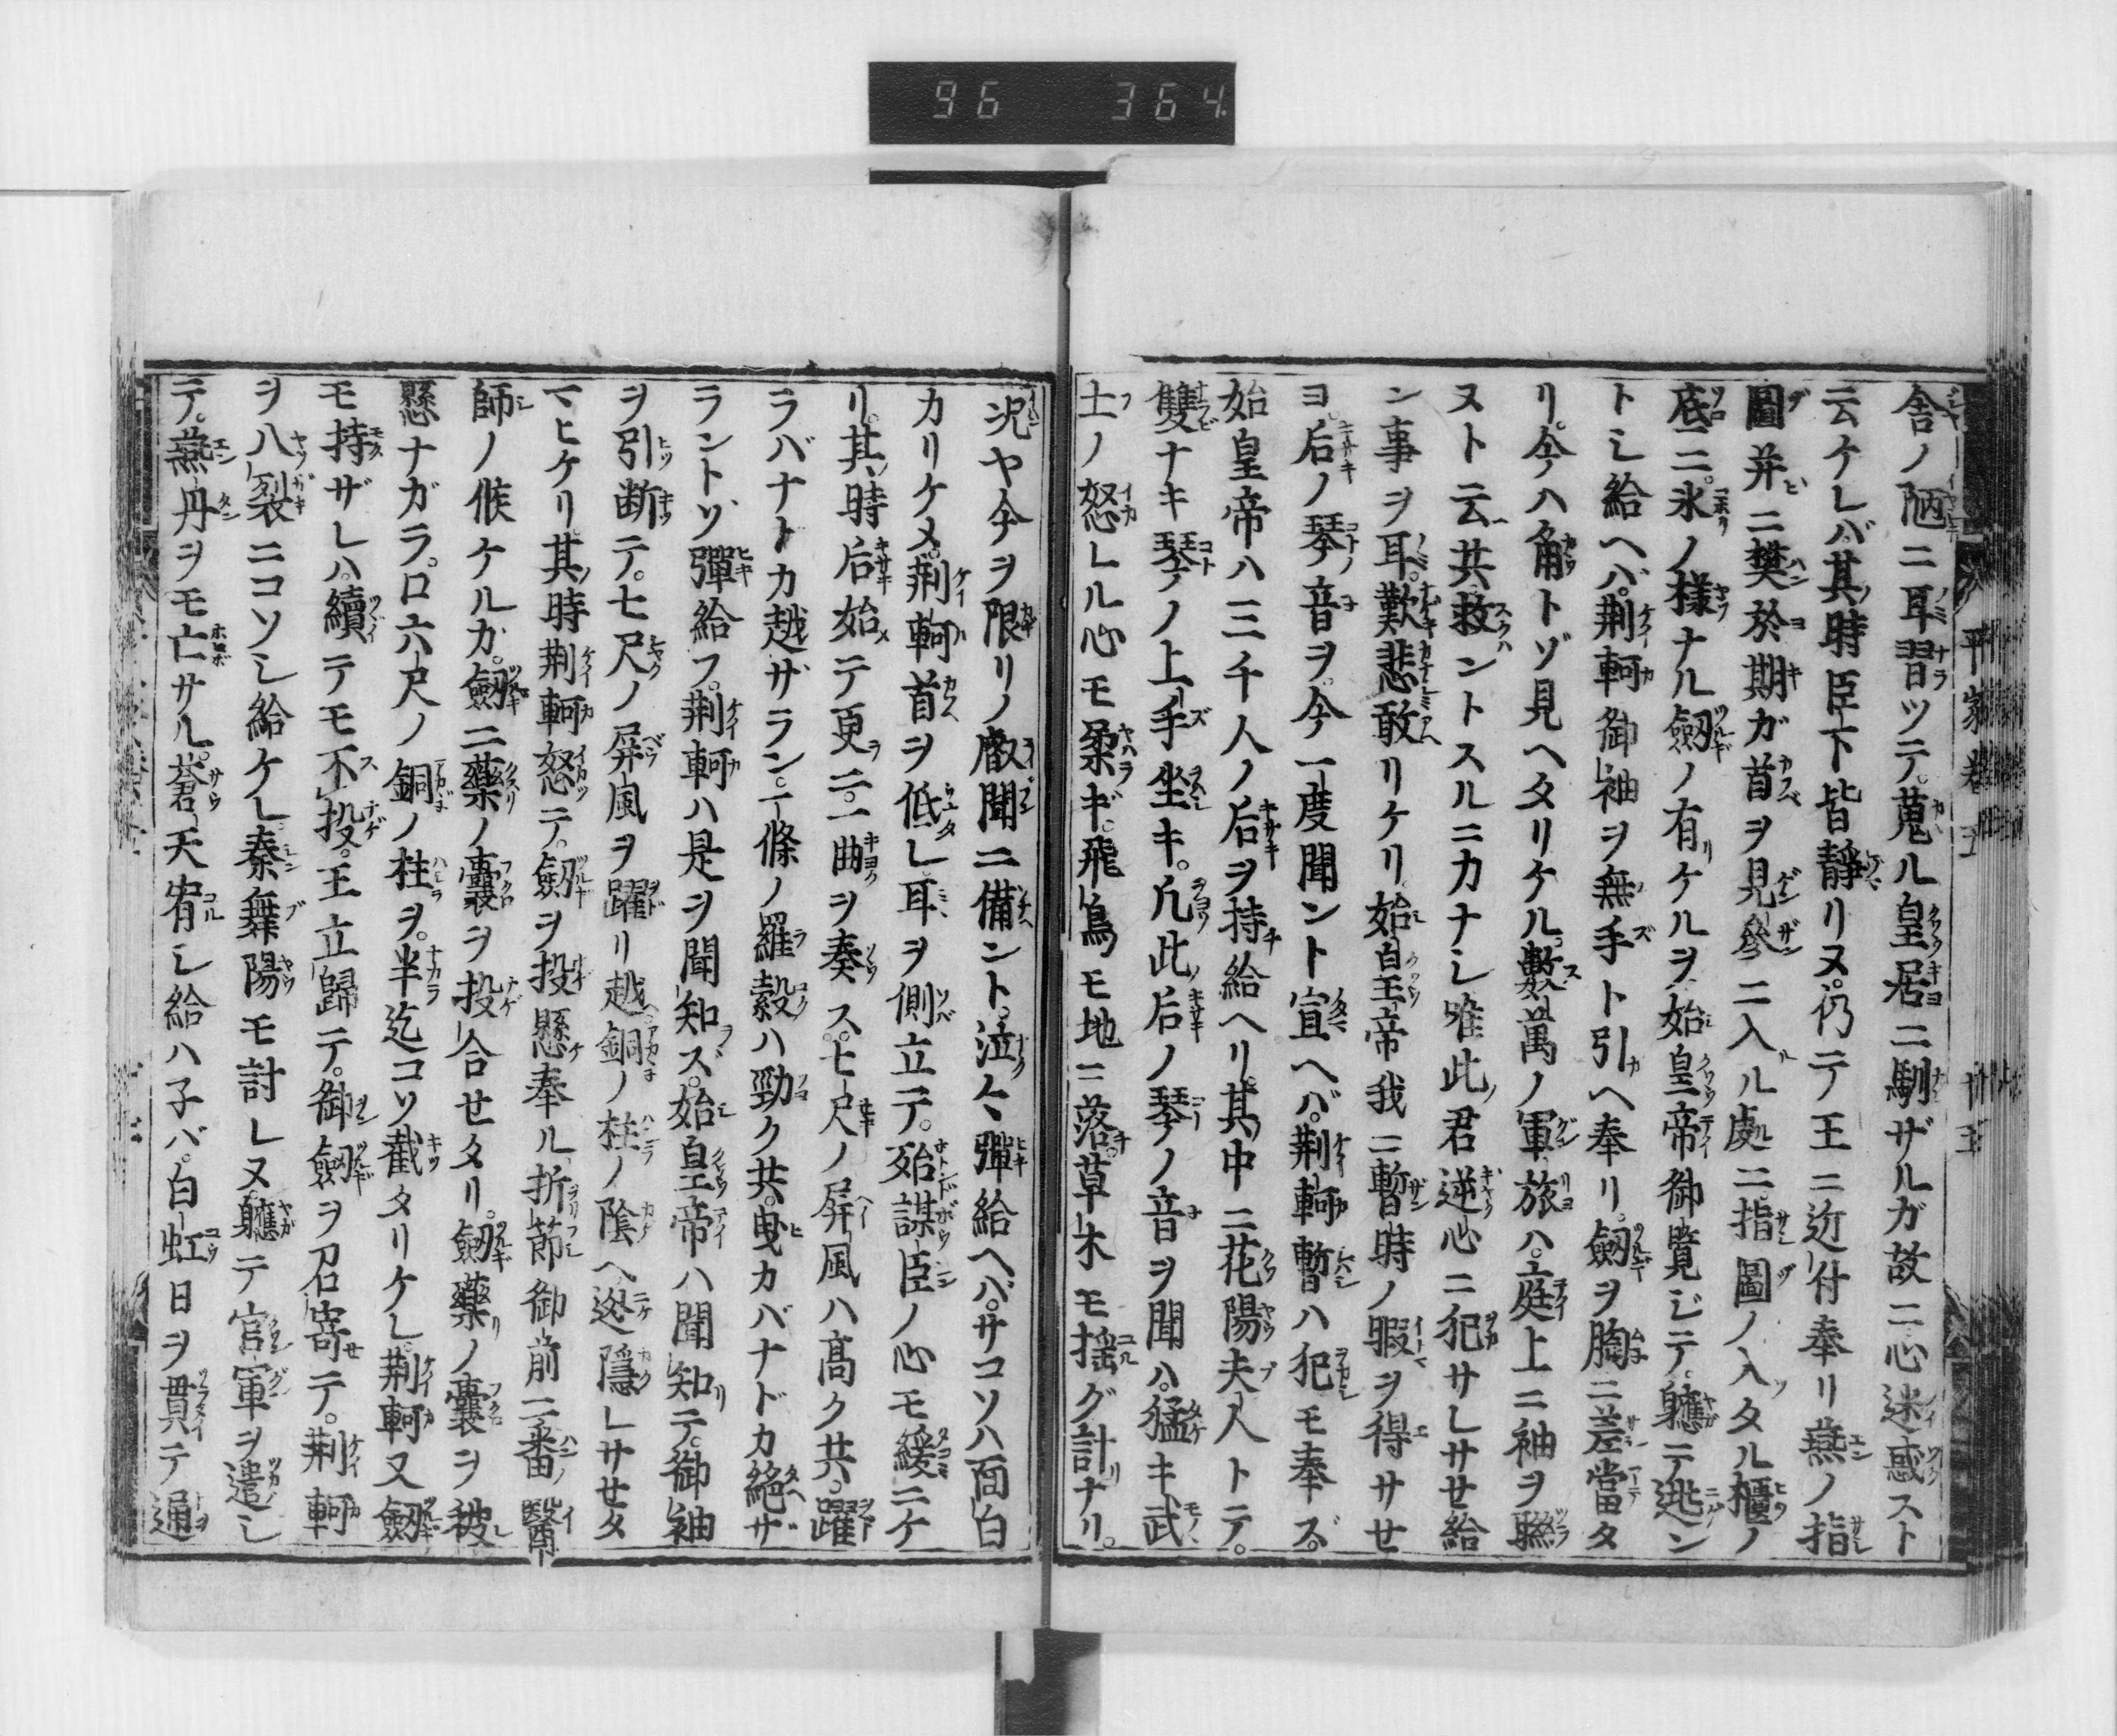 96 364.
平家卷五 廿五
舎ノ陋ニ耳習ツテ。蒐ル皇居ニ馴ザルガ故ニ心迷惑スト
云ケレバ。其時臣下皆靜リヌ。仍テ王ニ近付奉リ燕ノ指
圖并ニ樊於期ガ首ヲ見參ニ入ル處ニ。指圖ノ入タル櫃ノ
底ニ。氷ノ樣ナル劔ノ有ケルヲ。始皇帝御覽ジテ。軈テ逃ン
トシ給ヘバ。荊軻御袖ヲ無手ト引ヘ奉リ。劔ヲ胸ニ差當タ
リ。今ハ角トゾ見ヘタリケル。數萬ノ軍旅ハ。庭上ニ袖ヲ聯
ヌト云共救ントスルニカナシ唯此君逆心ニ犯サレサセ給
ン事ヲ耳。歎悲敢リケリ。始皇帝我ニ暫時ノ暇ヲ得サセ
ヨ。后ノ琴ノ音ヲ。今一度聞ント宣ヘバ。荊軻暫ハ犯モ奉ズ。
始皇帝ハ三千人ノ后ヲ持給ヘリ。其中ニ花陽夫人トテ。
雙ナキ琴ノ上手坐キ。凡此后ノ琴ノ音ヲ聞ハ。猛キ武
士ノ怒レル心モ柔ギ。飛鳥モ地ニ落。草木モ搖グ計ナリ。
况ヤ今ヲ限リノ叡聞ニ備ント。泣々彈給ヘバ。サコソハ面白
カリケメ。荊軻首ヲ低レ耳ヲ側立テ。殆謀臣ノ心モ緩ニケ
リ。其時后始テ更ニ。一曲ヲ奏ス。七尺ノ屏風ハ高ク共。躍
ラバナトカ越ザラン。一條ノ羅縠ハ勁ク共。曳カバナドカ絕ザ
ラントゾ彈給フ。荊軻ハ是ヲ聞知ズ。始皇帝ハ聞知リテ。御袖
ヲ引斷テ。七尺ノ屏風ヲ躍リ越。銅ノ柱ノ陰ヘ迯隱レサセタ
マヒケリ其時荊軻怒テ。劔ヲ投懸奉ル。折節御前ニ番ノ醫
師ノ候ケルガ。劔ニ藥ノ囊ヲ投合セタリ。劔藥ノ囊ヲ被
懸ナガラ。口六尺ノ銅ノ柱ヲ。半迄コソ截タリケレ。荊軻又劔
モ持ザレハ。續テモ不投。王立歸テ。御劔ヲ召寄テ。荊軻
ヲ八裂ニコソシ給ケレ。秦舞陽モ討レヌ。軈テ官軍ヲ遣シ
テ。燕丹ヲモ亡サル。蒼天宥シ給ハ子バ。白虹日ヲ貫テ通